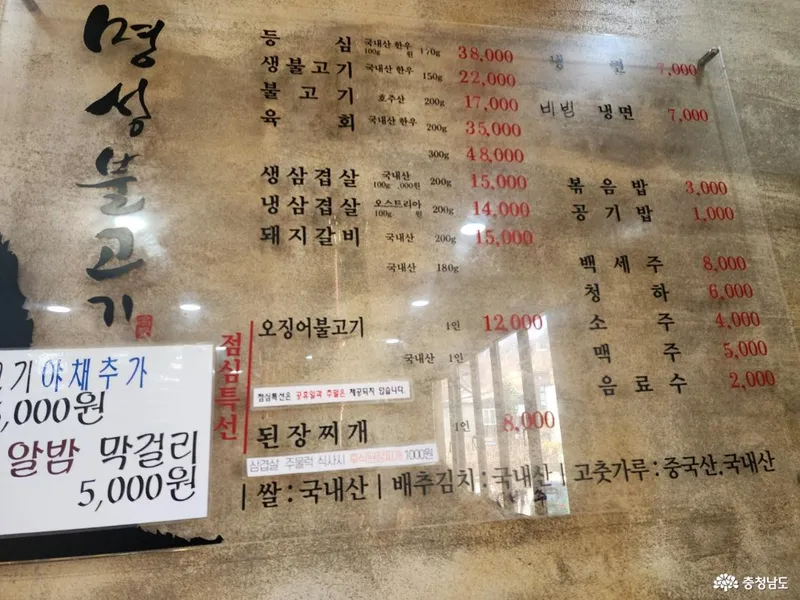 명성불고기
등심 국내산 한우 170g 38,000
100g 원
생불고기 국내산 한우 150g 22,000
불고기 호주산 200g 17,000
육회 국내산 한우 200g 35,000
300g 48,000
생삼겹살 국내산 200g 15,000
100g ,000원
냉삼겹살 오스트리아 200g 14,000
100g 원
돼지갈비 국내산 200g 15,000
국내산 180g
점심특선
오징어불고기 1인 12,000
국내산 1인
점심특선은 공휴일과 주말은 제공되지 않습니다.
된장찌개 1인 8,000
삼겹살 주물럭 식사시 후식된장찌개 1000원
냉면 7,000
비빔 냉면 7,000
볶음밥 3,000
공기밥 1,000
백세주 8,000
청하 6,000
소주 4,000
맥주 5,000
음료수 2,000
| 쌀 : 국내산 | 배추김치 : 국내산 | 고춧가루 : 중국산.국내산
기 야채추가
,000원
알밤 막걸리
5,000원
충청남도